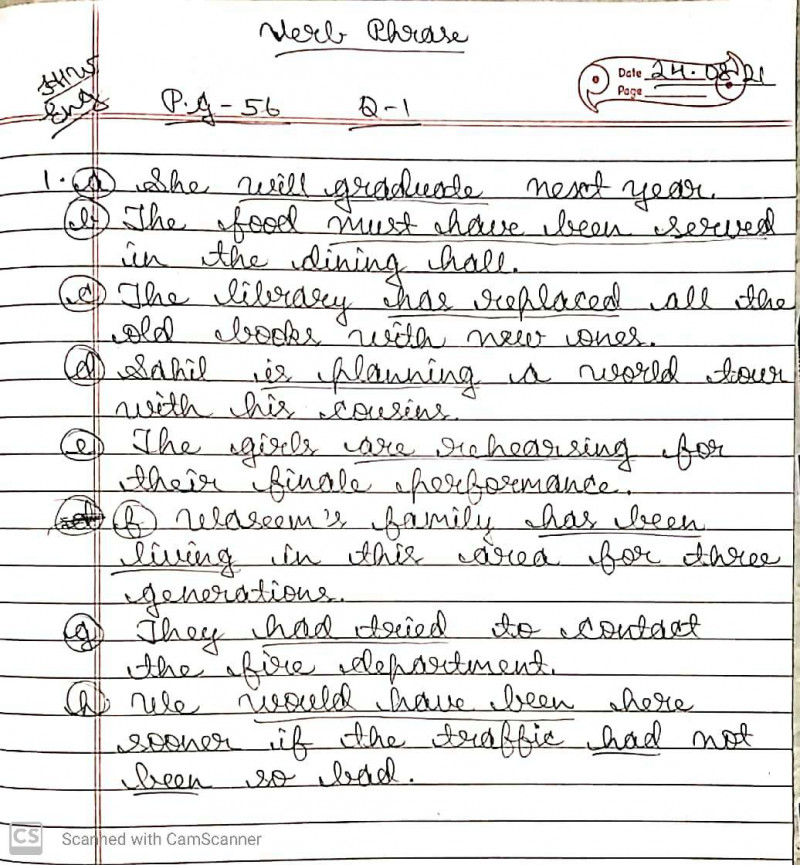 Verb Phrase
HW
Eng
Date 24.08.21
Page
P.g-56 Q-1
1. a She will graduate next year.
b The food must have been served
in the dining hall.
c The library has replaced all the
old books with new ones.
d Sahil is planning a world tour
with his cousins.
e The girls are rehearsing for
their finale performance.
f Waseem's family has been
living in this area for three
generations.
g They had tried to contact
the fire department.
h We would have been here
sooner if the traffic had not
been so bad.
CS Scanned with CamScanner